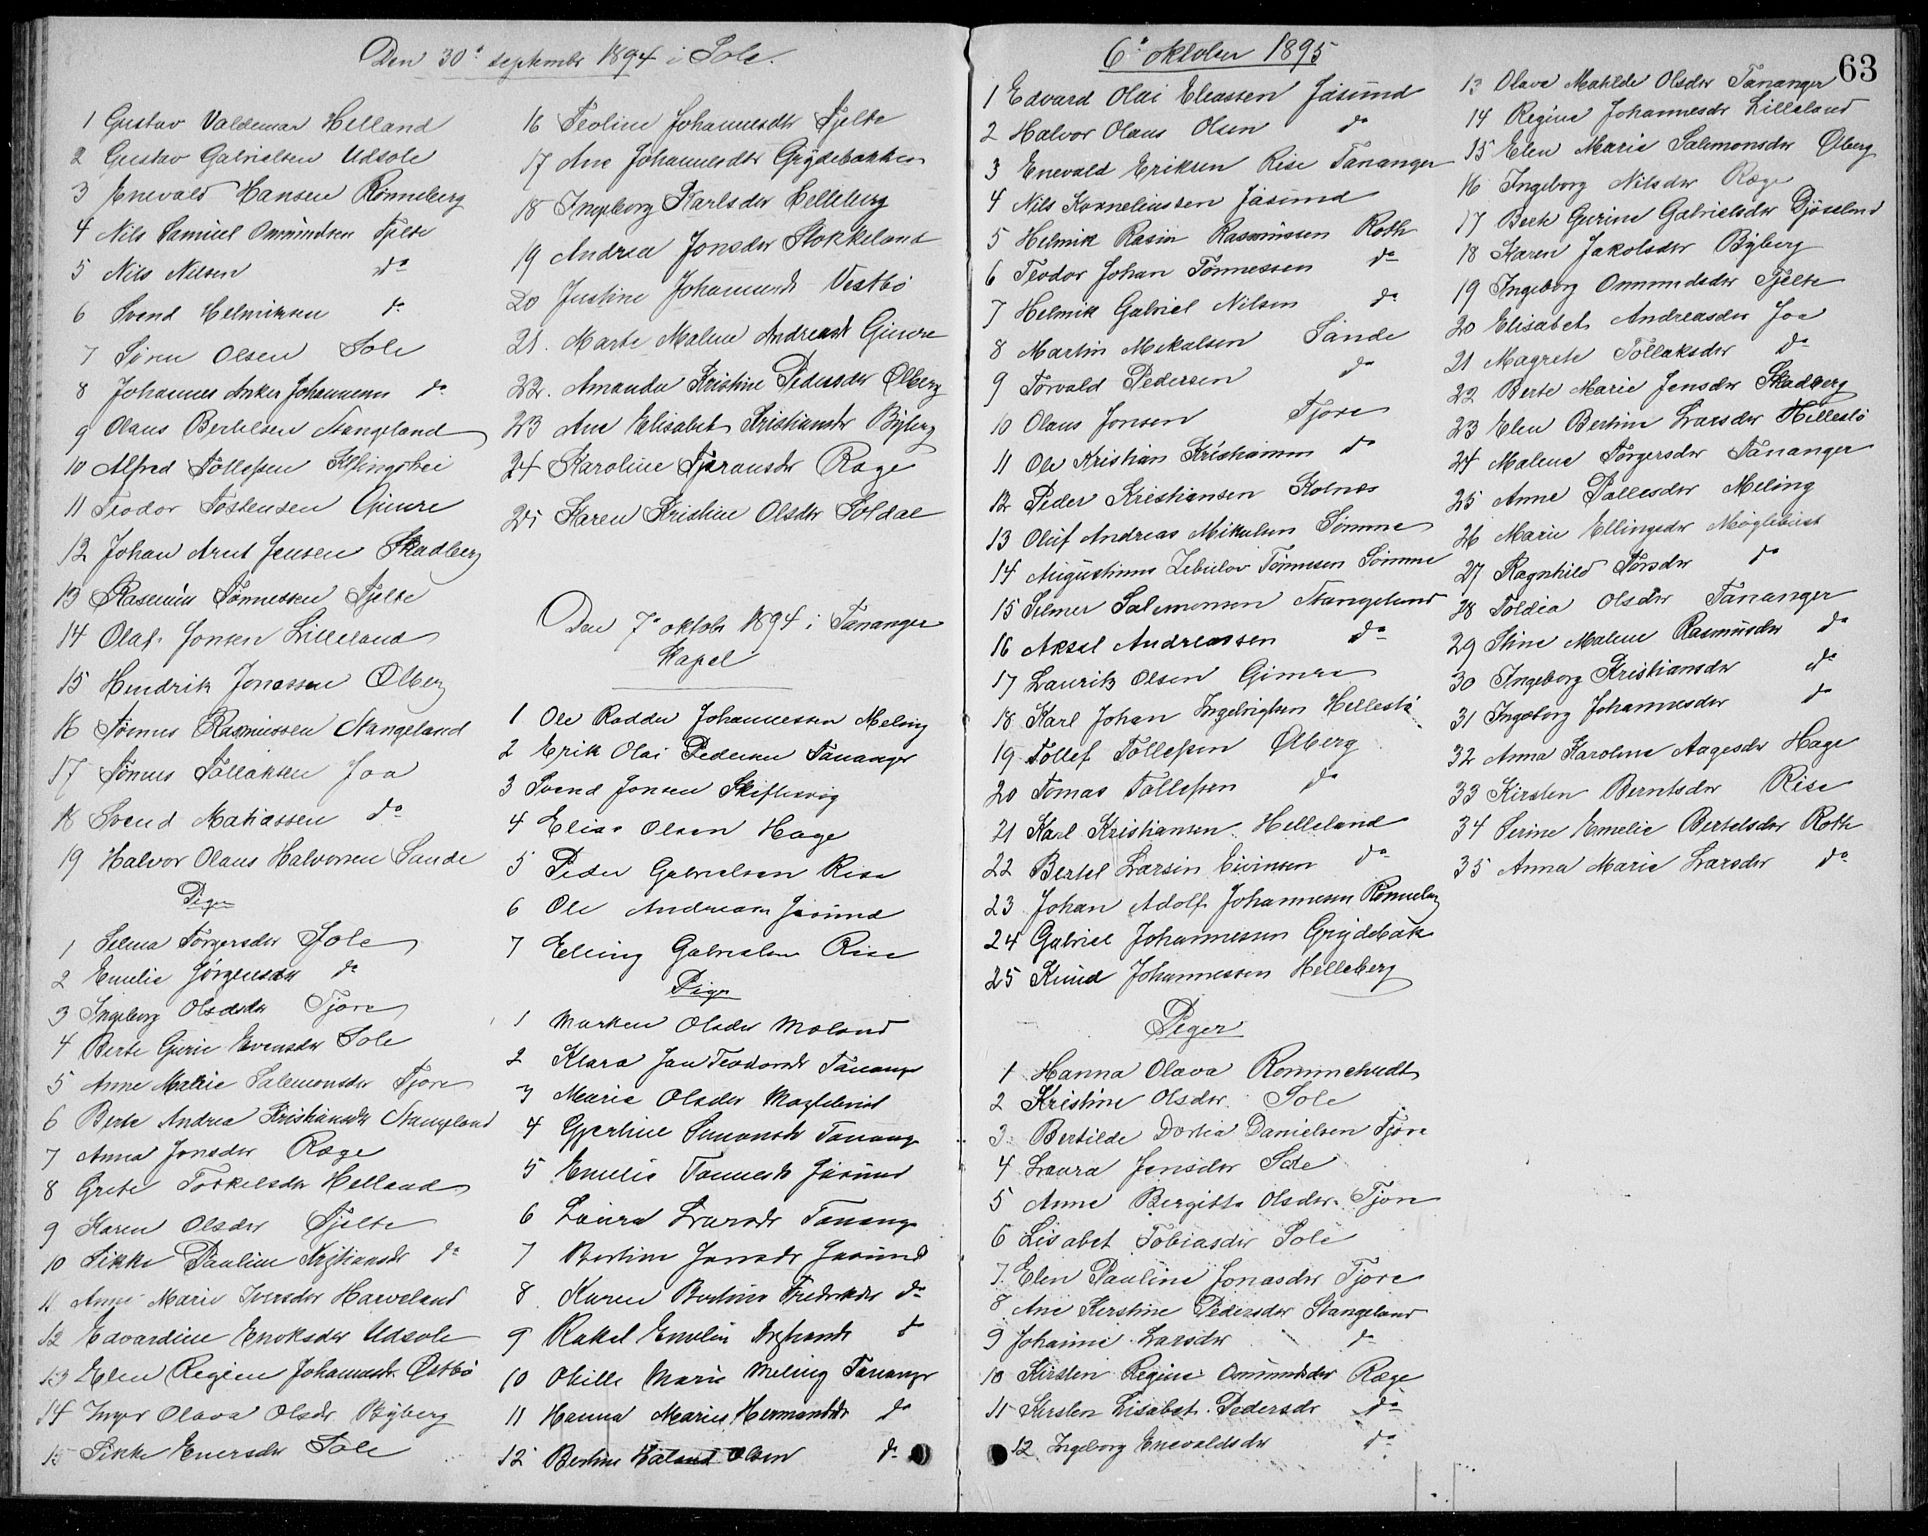 Den 30te septembr 1894 i Sole.
1 Gustav Valdemar Helland
2 Gustav Gabrielsen Udsole
3 Enevald Hansen Rönneberg
4 Nils Samuel Omundsen Tjelte
5 Nils Nilsen do
6 Svend Helmiksen do
7 Sören Olsen Sole
8 Johannes Anker Johannesen do
9 Olaus Bertelsen Stangeland
10 Alfred Tollefsen
11 Teodor Tostensen Gimre
12 Johan Arnt Jensen Skadberg
13 Rasmus Tönnessen Tjelte
14 Olaf Jonsen Lilleland
15 Hendrik Jonassen Ølberg
16 Tönnes Rasmussen Stangeland
17 Tönnes Tollaksen Joa
18 Svend Matiassen do
19 Halvor Olaus Halvorsen Sande
Piger
1 Selma Torgersdtr Sole
2 Emilie Jörgensdtr do
3 Ingeborg Olsdtr Tjora
4 Berte Gurie Evensdtr Sole
5 Anne Malie Salemonsdtr Tjora
6 Berte Andrea Kristiansdtr Stangeland
7 Anna Jonsdtr Ræge
8 Grete Torkelsdtr Helland
9 Karen Olsdtr Tjelte
10 Sikke Pauline Kristiansdtr do
11 Anne Marie Iversdtr Harveland
12 Edvardine Enoksdtr Udsole
13 Elen Regine Johannesdtr Østbö
14 Inger Olava Olsdtr Byberg
15 Sikke Enersdtr Sole
16 Teoline Johannesdtr Tjelte
17 Ane Johannesdtr Grydebakken
18 Ingeborg Karlsdtr Helleberg
19 Andrea Jonsdtr Stokkeland
20 Justine Johannesdtr Vestbö
21. Marte Malene Andreasdtr Gimre
22. Amanda Kristine Pedersdtr Ølberg
23 Ane Elisabet Kristiansdtr Byberg
24 Karoline Tjeransdtr Ræge
25 Karen Kristine Olsdtr Soldal
Den 7de oktobr 1894 i Tananger
Kapel
1 Ole Rodder Johannessen Meling
2 Erik Olai Pedersen Tananger
3 Svend Jonsen Skiftesvig
4 Elias Olsen Hage
5 Peder Gabrielsen Risa
6 Ole Andreas Jåsund
7 Elling Gabrielsen Risa
Piger
1 Marken Olsdtr Moland
2 Klara Jan Teodorsdtr Tananger
3 Marie Olsdtr Møglebust
4 Gjertine Simonsdtr Tananger
5 Emilie Tönnesdtr Jåsund
6 Laura Larsdtr Tananger
7 Bertine Jonsdtr Jåsund
8 Karen Bertine Fredriksdtr do
9 Rakel Emelie Kristiansdtr do
10 Otille Marie Meling Tananger
11 Hanna Marie Hermansdtr do
12 Bertine Håland Olsen do
6te oktober 1895
63
1 Edvard Olai Eleassen Jåsund
2 Halvor Olaus Olsen do
3 Enevald Eriksen Rise Tananger
4 Nils Korneliussen Jåsund
5 Helmik Rasin Rasmussen Roth
6 Teodor Johan Tönnessen do
7 Helmik Gabriel Nilsen do
8 Martin Mikalsen Sande
9 Torvald Pedersen do
10 Olaus Jonsen Tjora
11 Ole Kristian Kristiansen do
12 Peder Kristiansen Kolnes
13 Oluf Andreas Mikalsen Sömme
14 Augustinus Zebulon Tönnesen Sömme
15 Selmer Salemonsen Stangeland
16 Aksel Andreassen do
17 Lauritz Olsen Gimra
18 Karl Johan Ingebrigtsen Hellestö
19 Tollef Tollefsen Ølberg
20 Tomas Tollefsen do
21 Karl Kristiansen Helleland
22 Bertel Larsin Eivinsen do
23 Johan Adolf Johannesen Rönneberg
24 Gabriel Johannesen Grydebak
25 Knud Johannessen Helleberg
Piger
1 Hanna Olava Rommetvedt
2 Kristine Olsdtr Sole
3 Bertilde Dortea Danielsen Tjora
4 Laura Jensdtr Sole
5 Anne Bergitta Olsdtr Tjora
6 Lisabet Tobiasdtr Sole
7. Elen Pauline Jonasdtr Tjora
8 Ane Kirstine Pedersdtr Stangeland
9 Johanne Larsdtr do
10 Kirsten Regine Omundsdtr Ræge
11 Kirsten Lisabet Pedersdtr do
12 Ingeborg Enevaldsdtr do
13 Olava Matilde Olsdtr Tananger
14 Regine Johannesdtr Lilleland
15 Elen Marie Salemonsdtr Ølberg
16 Ingeborg Nilsdtr Ræge
17 Berte Gurine Gabrielsdtr Djösland
18 Karen Jakobsdtr Byberg
19 Ingeborg Ommundsdtr Tjelte
20 Elisabet Andreasdtr Joa
21 Magrete Tollaksdtr do
22 Berte Marie Jensdtr Skadberg
23 Elen Bertine Larsdtr Hellestö
24 Malene Torgersdtr Tananger
25 Anne Pallesdtr Meling
26 Marie Ellingsdtr Møglebust
27 Ragnhild Torsdtr do
28 Toldia Olsdtr Tananger
29 Stine Malene Rasmusdtr do
30 Ingeborg Kristiansdtr do
31 Ingeborg Johannesdtr do
32 Anna Karoline Aagesdtr Hage
33 Kirsten Berntsdtr Risa
34 Serine Emelie Bertelsdtr Roth
35 Anna Marie Larsdtr do